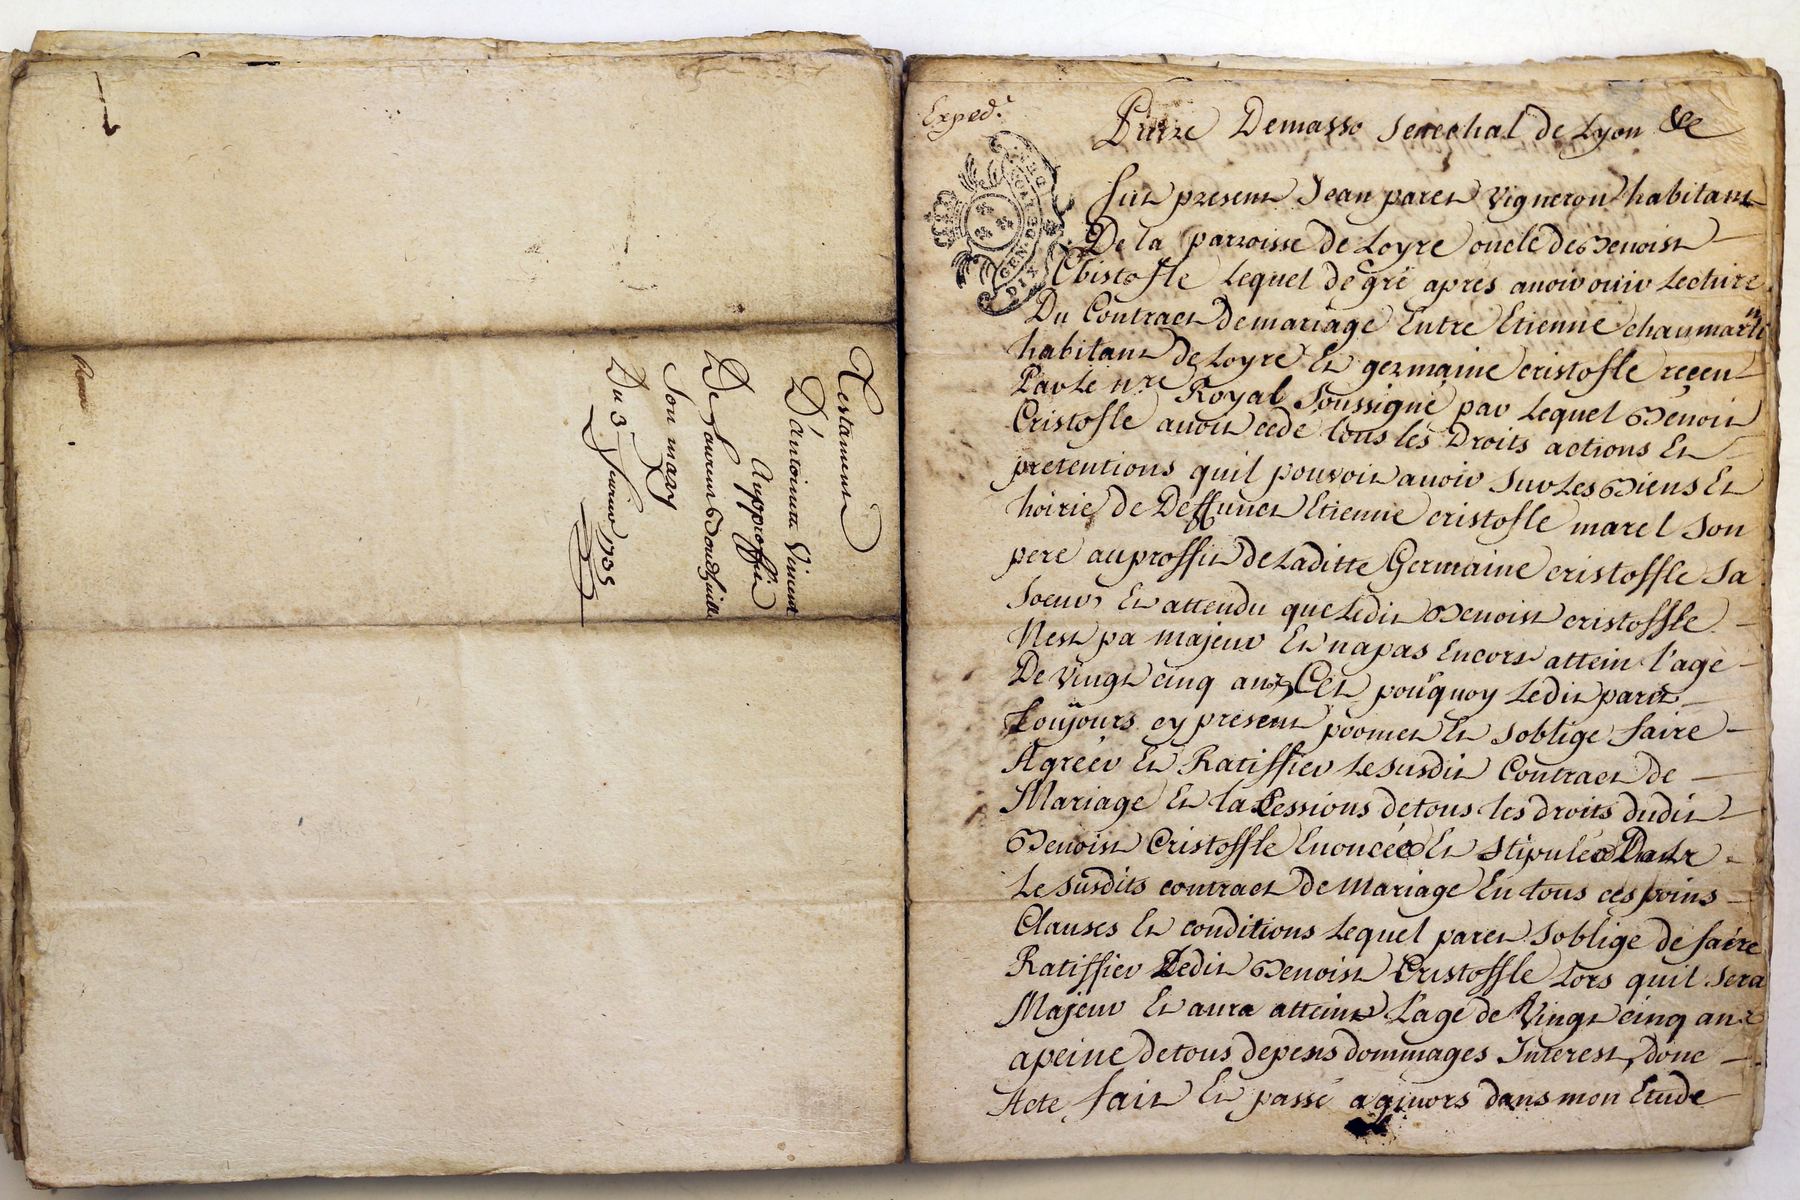 Testament
D'antoinette Vincent
Au proffit
De Laurent
Son mary
Du 3 feurier 1735
Exped.
GEN. DE LYON
DIX
Demasso Senechal de Lyon &c
fut present Jean paret Vigneron habitant
De la parroisse de Loyre oncle de Benoist
Christofle Lequel de gré apres auoir ouiv Lecture
Du Contract de mariage Entre Etienne chaumartin
habitant de Loyre Et germaine cristofle reçeu
Par Le nre Royal Soussigné par Lequel Benoit
Cristofle auoit cedé tous les Droits actions Et
pretentions quil pouvoit auoir Sur Les Biens Et
hoirie de Deffunct Etienne cristofle marel Son
pere au proffit de Laditte Germaine cristoffle Sa
Soeur, Et attendu que Ledit Benoist cristoffle
Nest pa majeur Et na pas Encors attein l'age
De Vingt cinq ans Cet pou'quoy Ledit paret
toujours cy present promet Et Soblige faire
Agréer Et Ratiffier Le Susdit Contract de
Mariage Et la Cessions de tous les droits dudit
Benoist Cristoffle Enoncéé Et Stipuléé Dans
Le Susdits contract de Mariage En tous ces poins
Clauses Et conditions Lequel paret Soblige de faire
Ratiffier Ledit Benoist Cristoffle Lors quil Sera
Majeur Et aura atteint L'age de Vingt cinq ans
apeine de tous depens dommages Interest, donc
Acte fait Et passé a giuors dans mon Etude